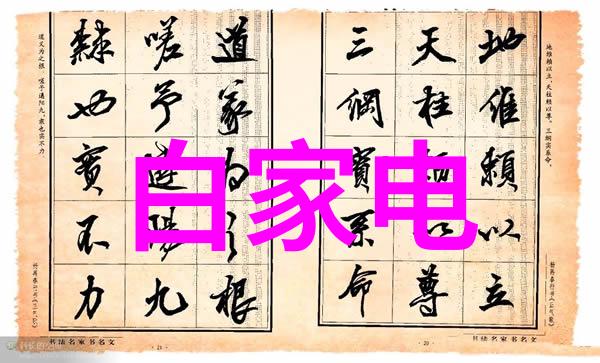 白家电
地維賴以立
天柱賴以尊
三綱實系命
道義為之根
嗟予遘陽九
隸也實不力
地维赖以立，天柱赖以尊。三纲实系命，
道义为之根。嗟予遘阳九，隶也实不力
书法名家书名文
20
21
书法名家书名文